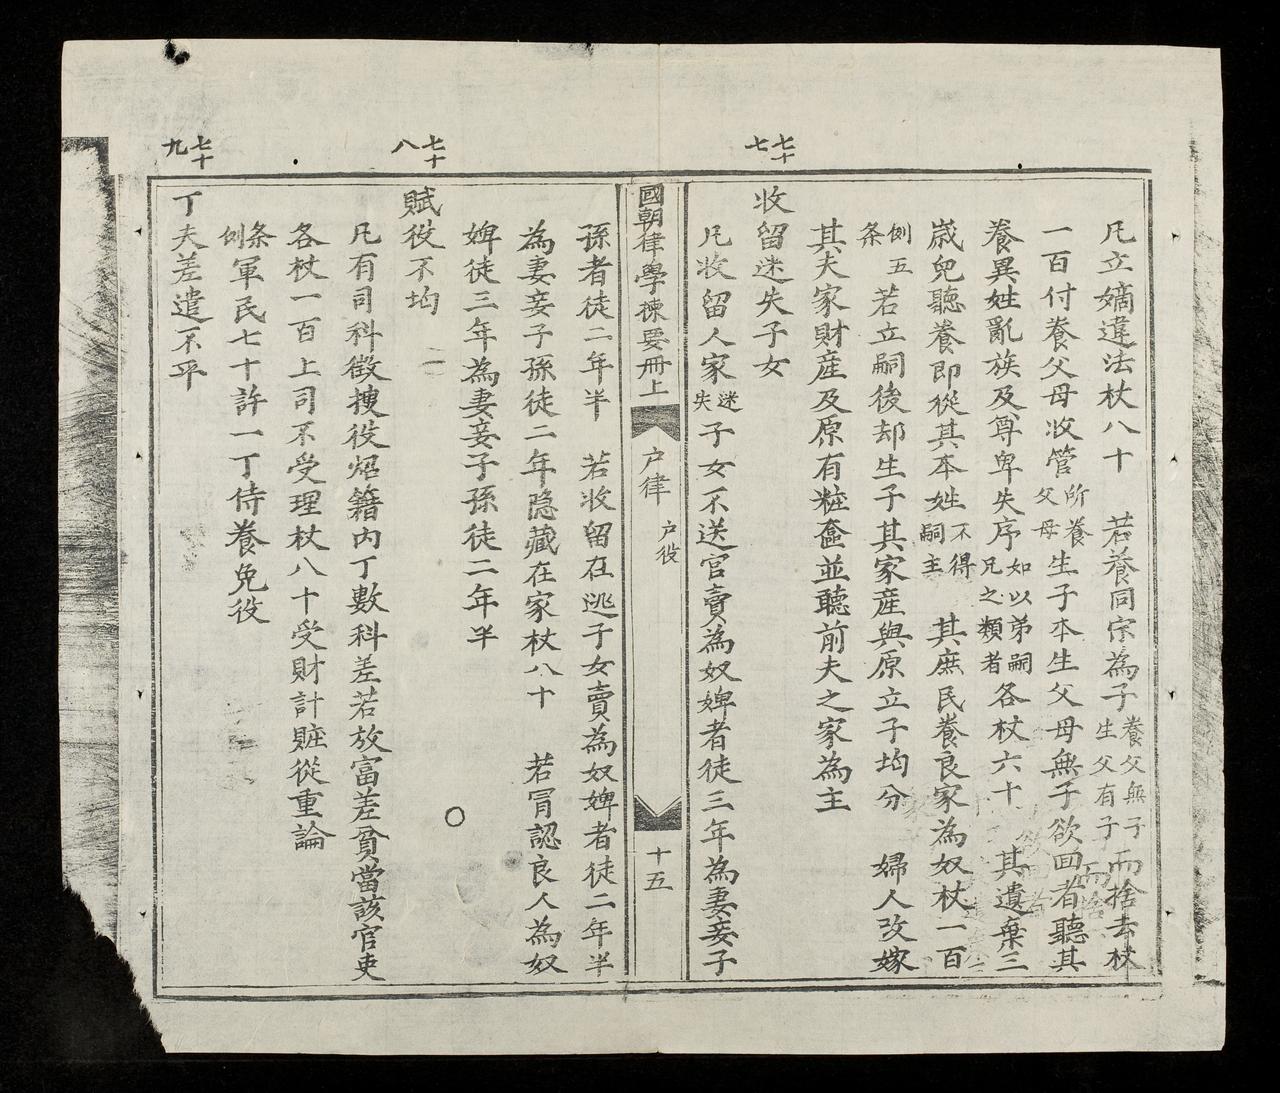 七十七
凡立嫡違法杖八十　若養同宗為子養父無子生父有子而捨去杖
一百付養父母收管所養父母生子本生父母無子欲囬者聽其
養異姓亂族及尊卑失序如以弟嗣兄之類者各杖六十　其遺棄三
歳兒聽養即從其本姓不得嗣主　其庶民養良家為奴杖一百
例五条若立嗣後却生子其家產與原立子均分　婦人改嫁
其夫家財產及原有粧奩並聽前夫之家為主
收留迷失子女
凡收留人家迷失子女不送官賣為奴婢者徒三年為妻妾子
國朝律學揀要冊上　户律　户役　十五
孫者徒二年半　若收留在逃子女賣為奴婢者徒二年半
為妻妾子孫徒二年隐藏在家杖八十　若冐認良人為奴
婢徒三年為妻妾子孫徒二年半
七十八
賦役不均
凡有司科徵搜役炤籍内丁數科差若放富差貧當該官吏
各杖一百上司不受理杖八十受財計賍從重論
条例軍民七十許一丁侍養免役
七十九
丁夫差遣不平